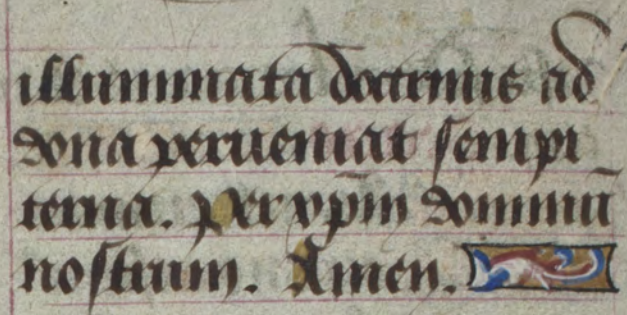 illuminata doctrinis ad
dona perueniat sempi
terna. Per xp̄m dominū
nostrum. Amen.